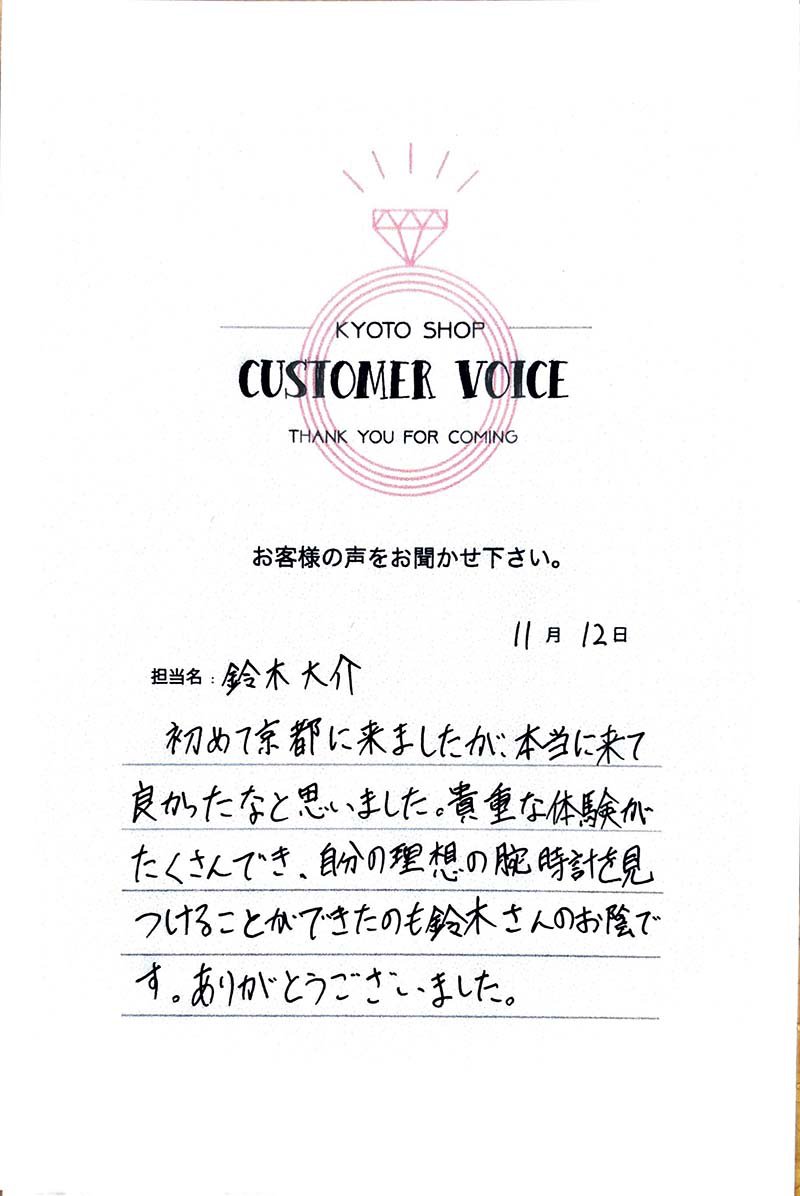 KYOTO SHOP
CUSTOMER VOICE
THANK YOU FOR COMING
お客様の声をお聞かせ下さい。
11月 12日
担当名：鈴木大介
初めて京都に来ましたが、本当に来て
良かったなと思いました。貴重な体験が
たくさんでき、自分の理想の腕時計を見
つけることができたのも鈴木さんのお陰で
す。ありがとうございました。